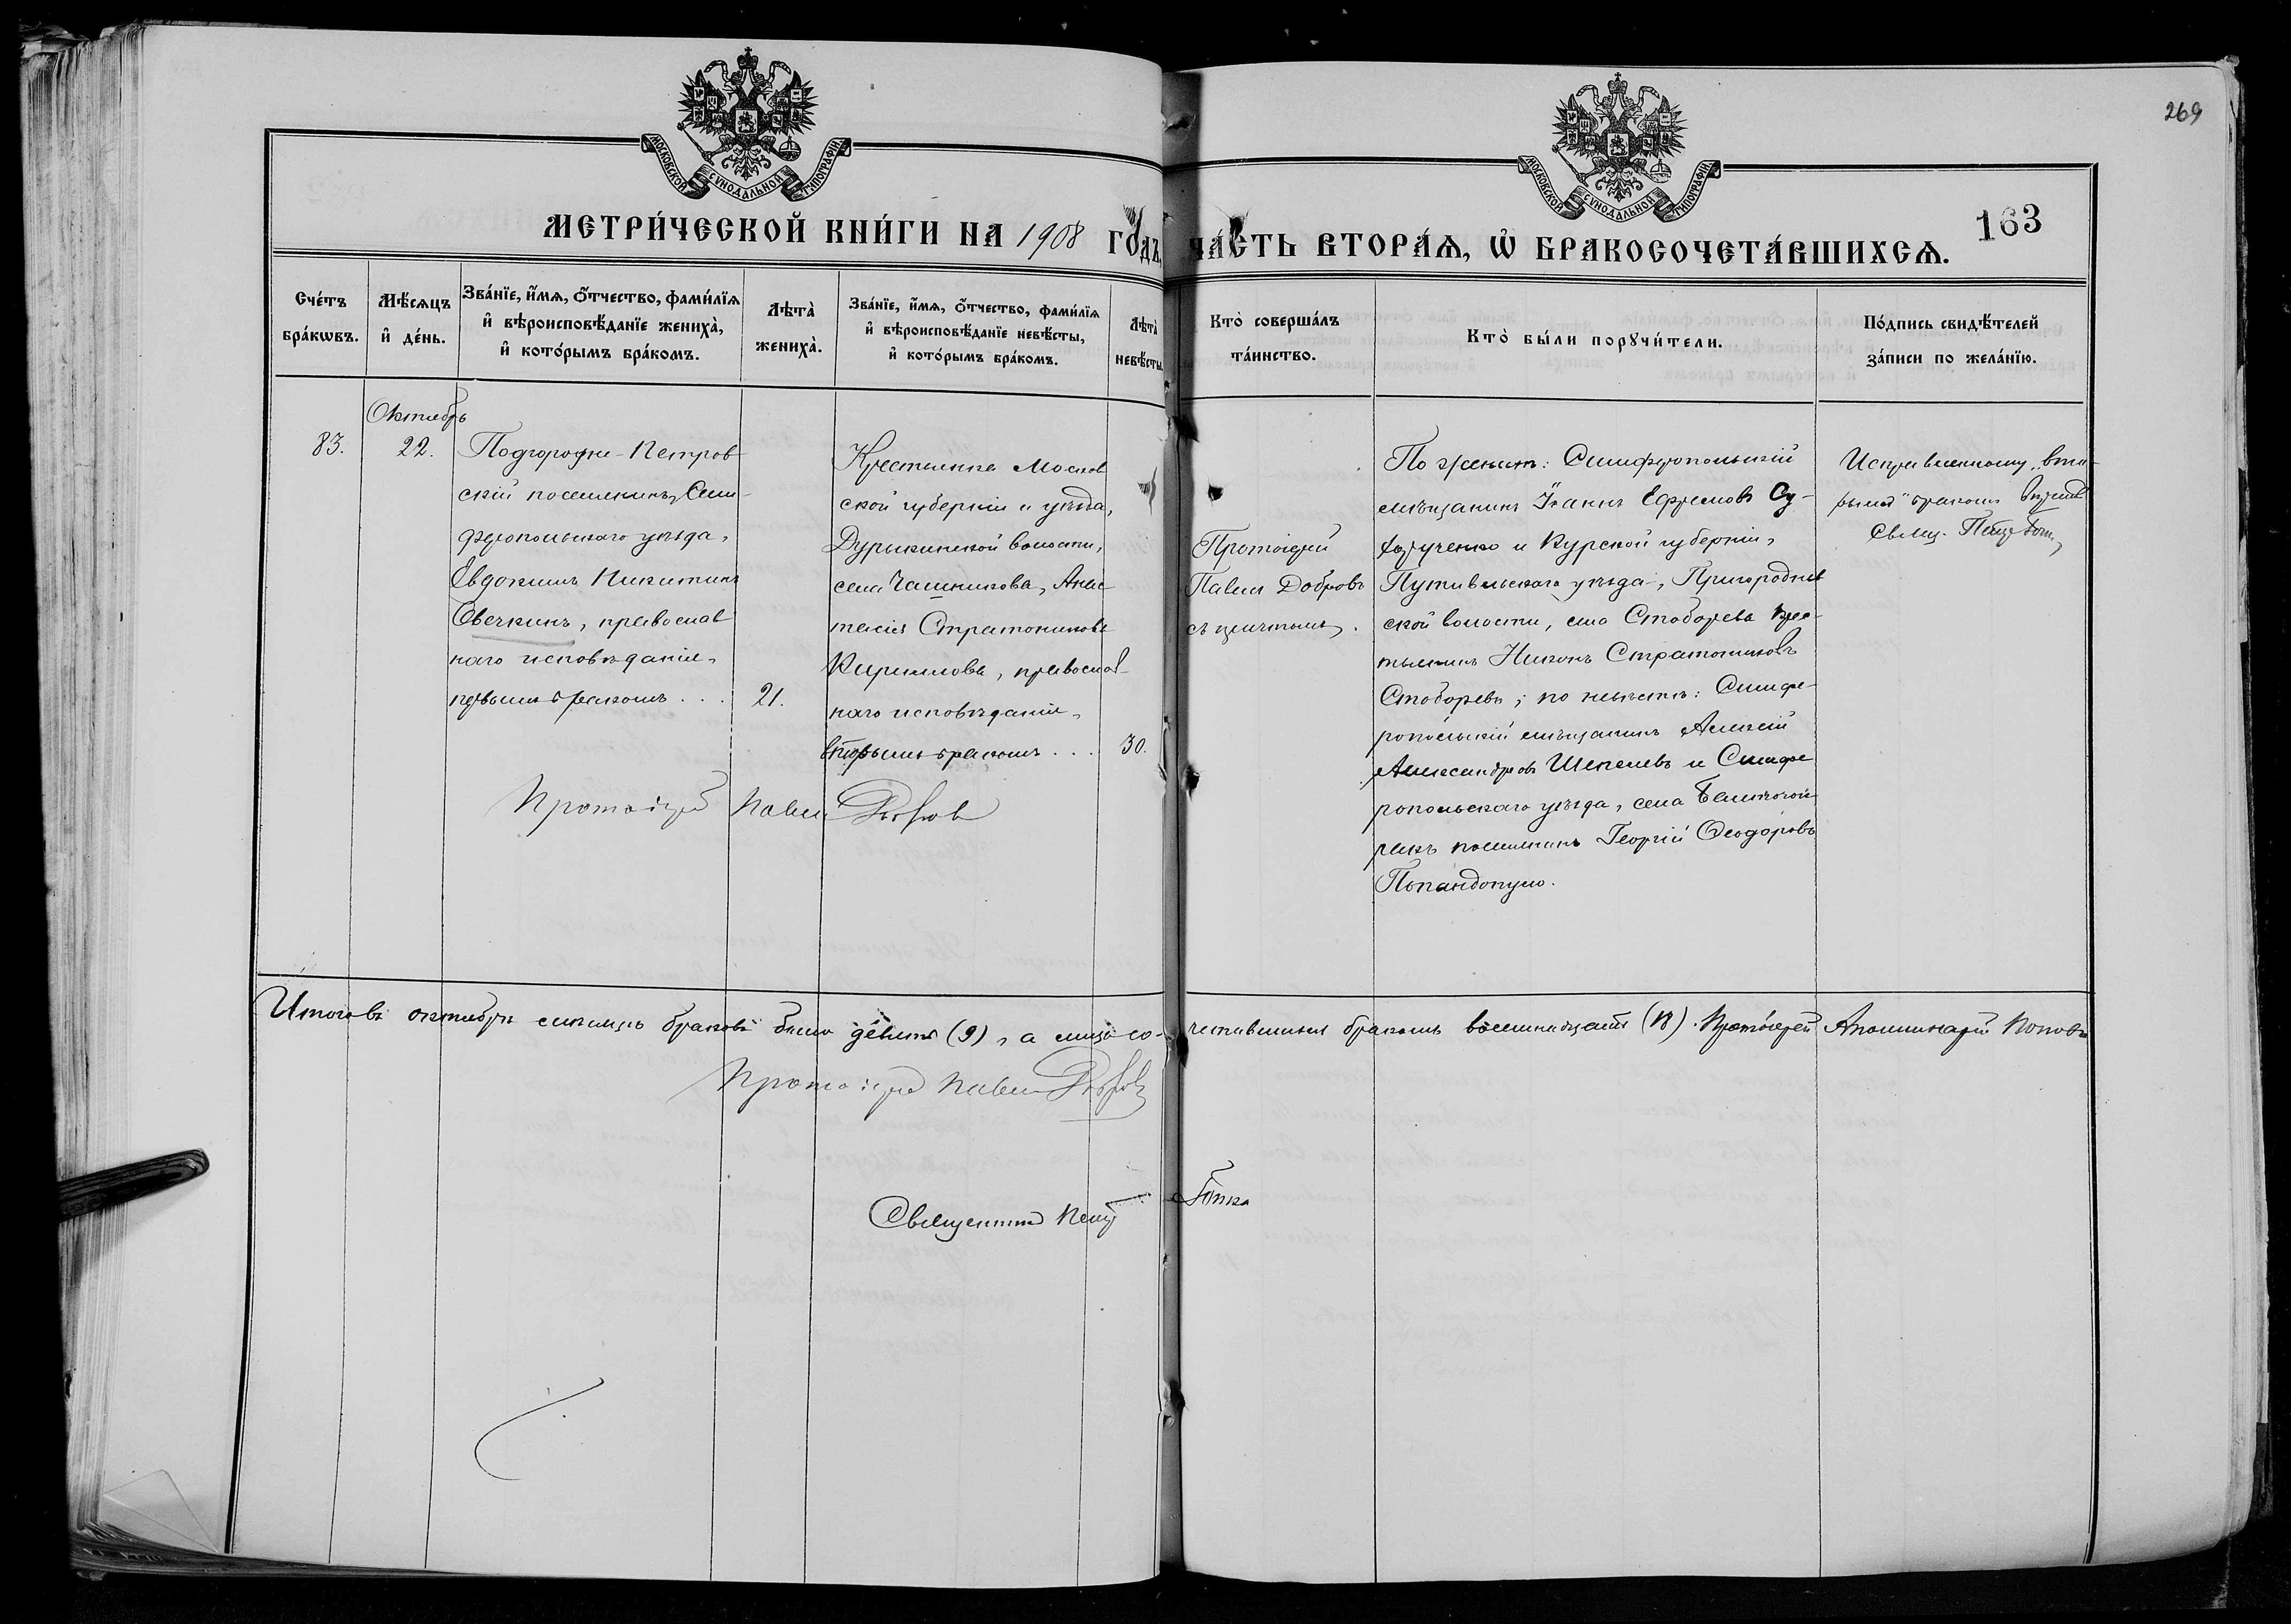 269
МОСКОВСКОЙ СѴНОДАЛЬНОЙ ТИПОГРАФІИ
МОСКОВСКОЙ СѴНОДАЛЬНОЙ ТИПОГРАФІИ
163
МЕТРИ́ЧЕСКОЙ КНИ́ГИ НА 1908 ГОДЪ,
ЧА́СТЬ ВТОРА́Ѧ, Ѽ БРАКОСОЧЕТА́ВШИХСѦ.
Сче́тъ
бра́кѡвъ.
Мѣ́сѧцъ
и҆ де́нь.
Зва́нїе, и҆́мѧ, о҆́тчество, фами́лїѧ
и҆ вѣроисповѣ́данїе жениха̀,
и҆ кото́рымъ бра́комъ.
Лѣта̀
жениха̀.
Зва́нїе, и҆́мѧ, о҆́тчество, фами́лїѧ
и҆ вѣроисповѣ́данїе невѣ́сты,
и҆ кото́рымъ бра́комъ.
Лѣта̀
невѣ́сты.
Кто̀ соверша́лъ
та́инство.
Кто̀ бы́ли порꙋчи́тели.
По́дпись свидѣ́телей
за́писи по жела́нїю.
83.
Октябрь
22.
Подгородне-Петров
скій поселянинъ, Сим
феропольскаго уѣзда,
Евдокимъ Никитинъ
Овечкинъ, православ
наго исповѣданія,
первымъ бракомъ . . .
21.
Крестьянка Москов
ской губерніи и уѣзда,
Дурыкинской волости,
села Чашникова, Анас
тасія Стратоникова
Кириллова, православ-
наго исповѣданія,
вторымъ бракомъ . . .
30.
Протоіерей Павелъ Добровъ
Протоіерей
Павелъ Добровъ
съ причтомъ.
По женихѣ: Симферопольскій
мѣщанинъ Іоаннъ Ефремовъ
и Курской губерніи,
Путивльскаго уѣзда, Пригороднев
ской волости, села Стоборева крес-
тьянинъ Никонъ Стратониковъ
Стоборевъ; по невѣстѣ: Симфе-
ропольскій мѣщанинъ Алексій
Александровъ Шепелевъ и Симфе
ропольскаго уѣзда, села
поселянинъ Георгій Ѳеодоровъ
Попандопуло.
Исправленному „вто-
рымъ" бракомъ вѣрить
Свящ. Петръ
Итого въ октябрѣ мѣсяцѣ браковъ было девять (9), а лицъ со-
четавшихся бракомъ восемнадцать (18). Протоіерей Аполлинарій Поповъ
Протоіерей Павелъ Добровъ
Священникъ Петръ